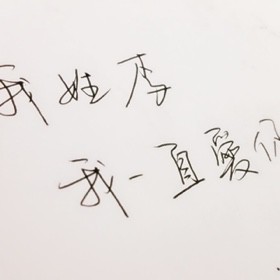 我姓李
我一直爱你